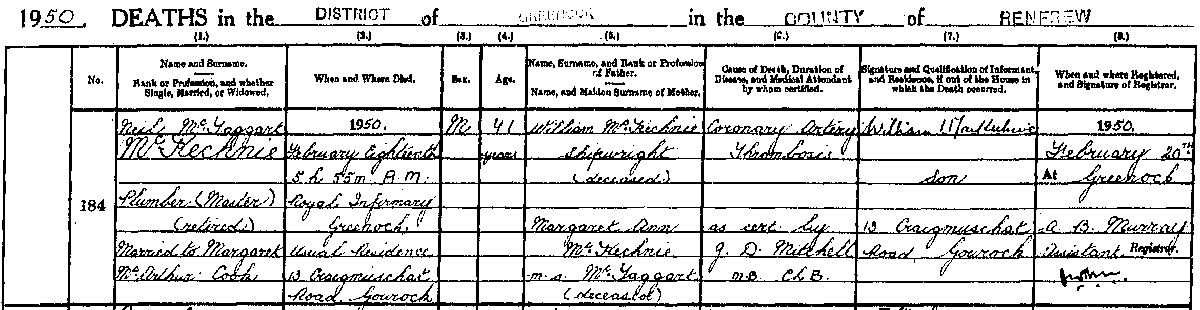 1950 DEATHS in the DISTRICT of GREENOCK in the COUNTY of RENFREW
(1.) (2.) (3.) (4.) (5.) (6.) (7.) (8.)
No.
Name and Surname.
Rank or Profession, and whether
Single, Married, or Widowed.
When and Where Died.
Sex.
Age.
Name, Surname, and Rank or Profession
of Father.
Name, and Maiden Surname of Mother.
Cause of Death, Duration of
Disease, and Medical Attendant
by whom certified.
Signature and Qualification of Informant,
and Residence, if out of the House in
which the Death occurred.
When and where Registered,
and Signature of Registrar.
184
Neil McTaggart
McKechnie
Plumber (Master)
(retired)
Married to Margaret
McArthur Cook
1950.
February Eighteenth
5 h 55m A.M.
Royal Infirmary
Greenock
Usual Residence
13 Craigmuschat
Road Gourock
M
41
years
William McKechnie
Shipwright
(deceased)
Margaret Ann
McKechnie
m.s. McTaggart
(deceased)
Coronary Artery
Thrombosis
as cert by
J. D. Mitchell
M.B. Ch.B.
William
son
13 Craigmuschat
Road Gourock
1950.
February 20th
At Greenock
A. B. Murray
Assistant Registrar.